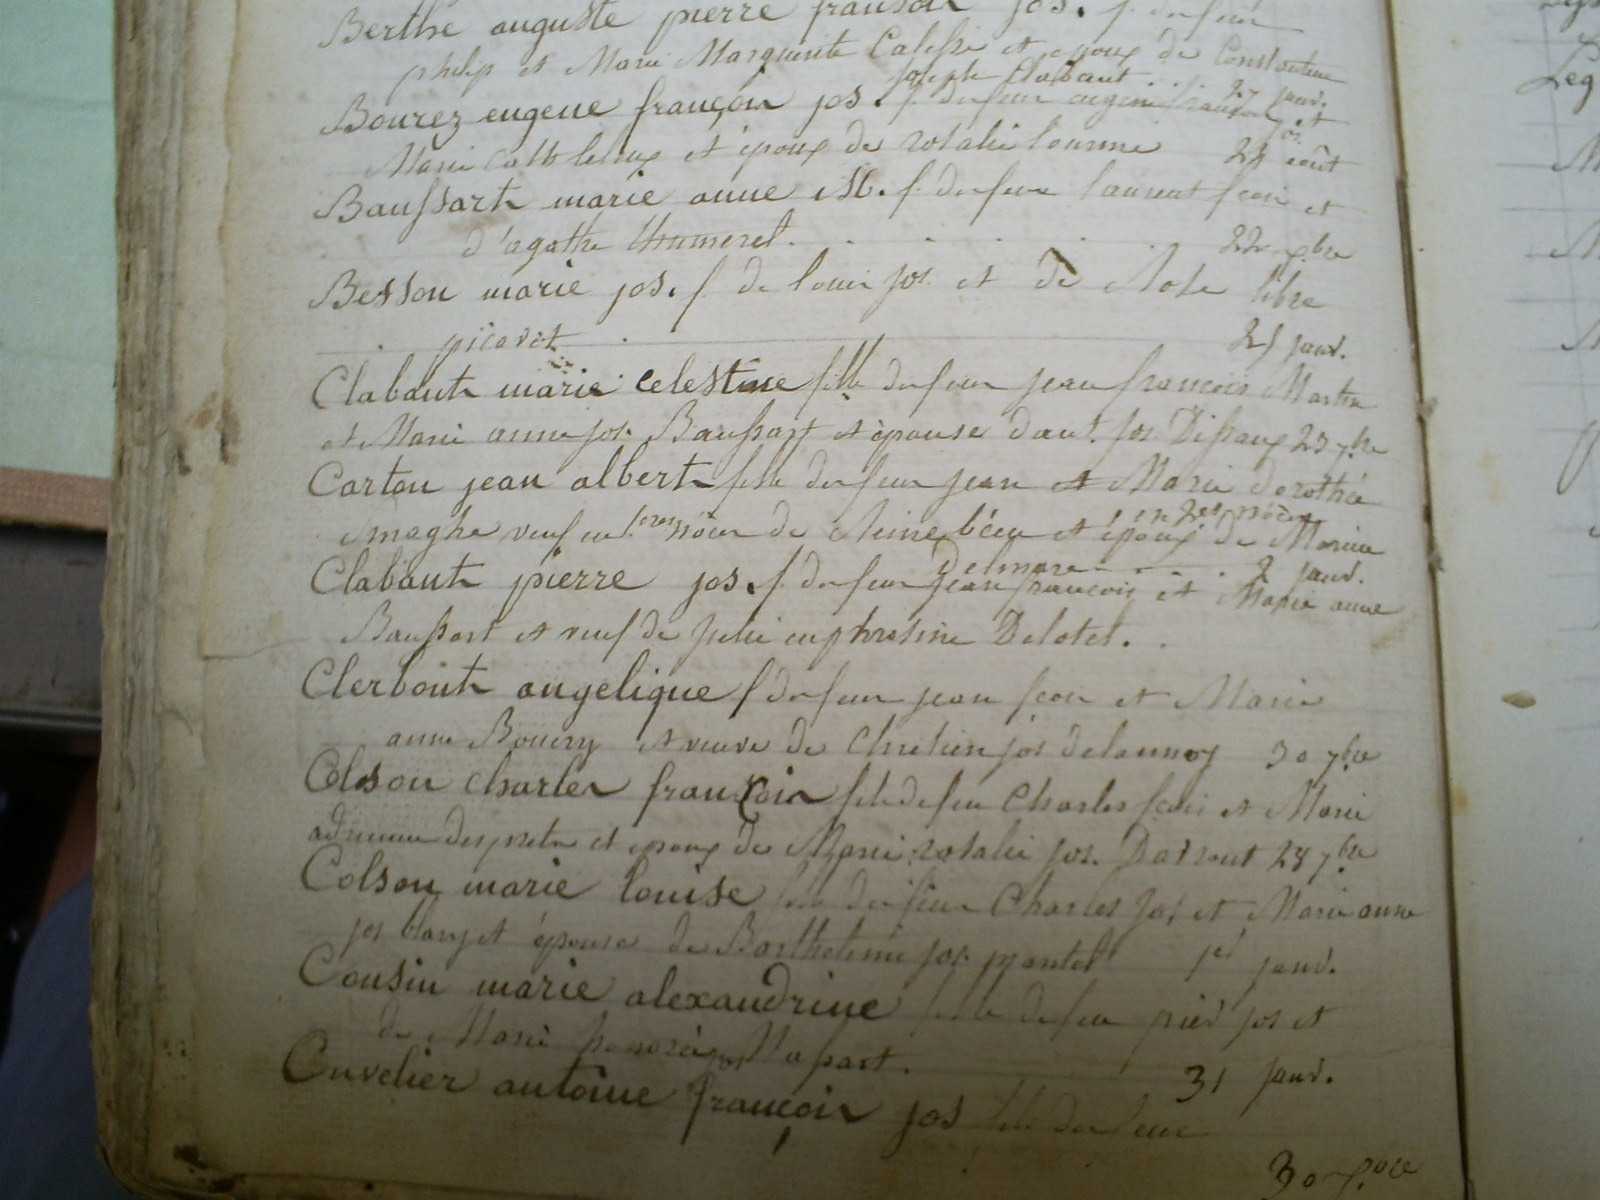 Berthe auguste pierre françois jos. f. du feu
philip et Marie Marguerite et epoux de Constantine
joseph Clabaut 27 janv.
Bourez eugene françois jos. f. du feu eugene françois jos. et
Marie et époux de rosalie 24 août
Baussart marie anne M. f. du feu laurent fcois et
d'agathe thumerel. 22 bre
Besson marie jos. f. de louis jos. et de Rose libre
picavet 25 janv.
Clabaut marie celestine fille du feu jean francois Martin
et Marie anne jos. Baussart et épouse d'aut. jos. Dissaux 23 7.bre
Carton jean albert fils du feu jean et Marie dorothée
meghe veuf en 1.eres nôces de Reine bécu et époux en 2es nôces de Marie
Delmare 2 janv.
Clabaut pierre jos. f. du feu jean francois et Marie anne
Baussart et veuf de julie euphrosine Delotel.
Clerbout angelique f du feu jean fcois et Marie
anne Bouery et veuve de Chretien jos delannoy 30 7.bre
Colson charles françois fils de feu Charles fcois et Marie
adrienne desprets et epoux de Marie rosalie jos. 28 7.bre
Colson marie louise fille du feu Charles jos et Marie anne
jos blanq et épouse de Barthelemie jos. mantel 1er janv.
Cousin marie alexandrine fille de feu pier jos et
de Marie honoré jos Mapart. 31 janv.
Cuvelier antoine françois jos fils du feu
30 bre